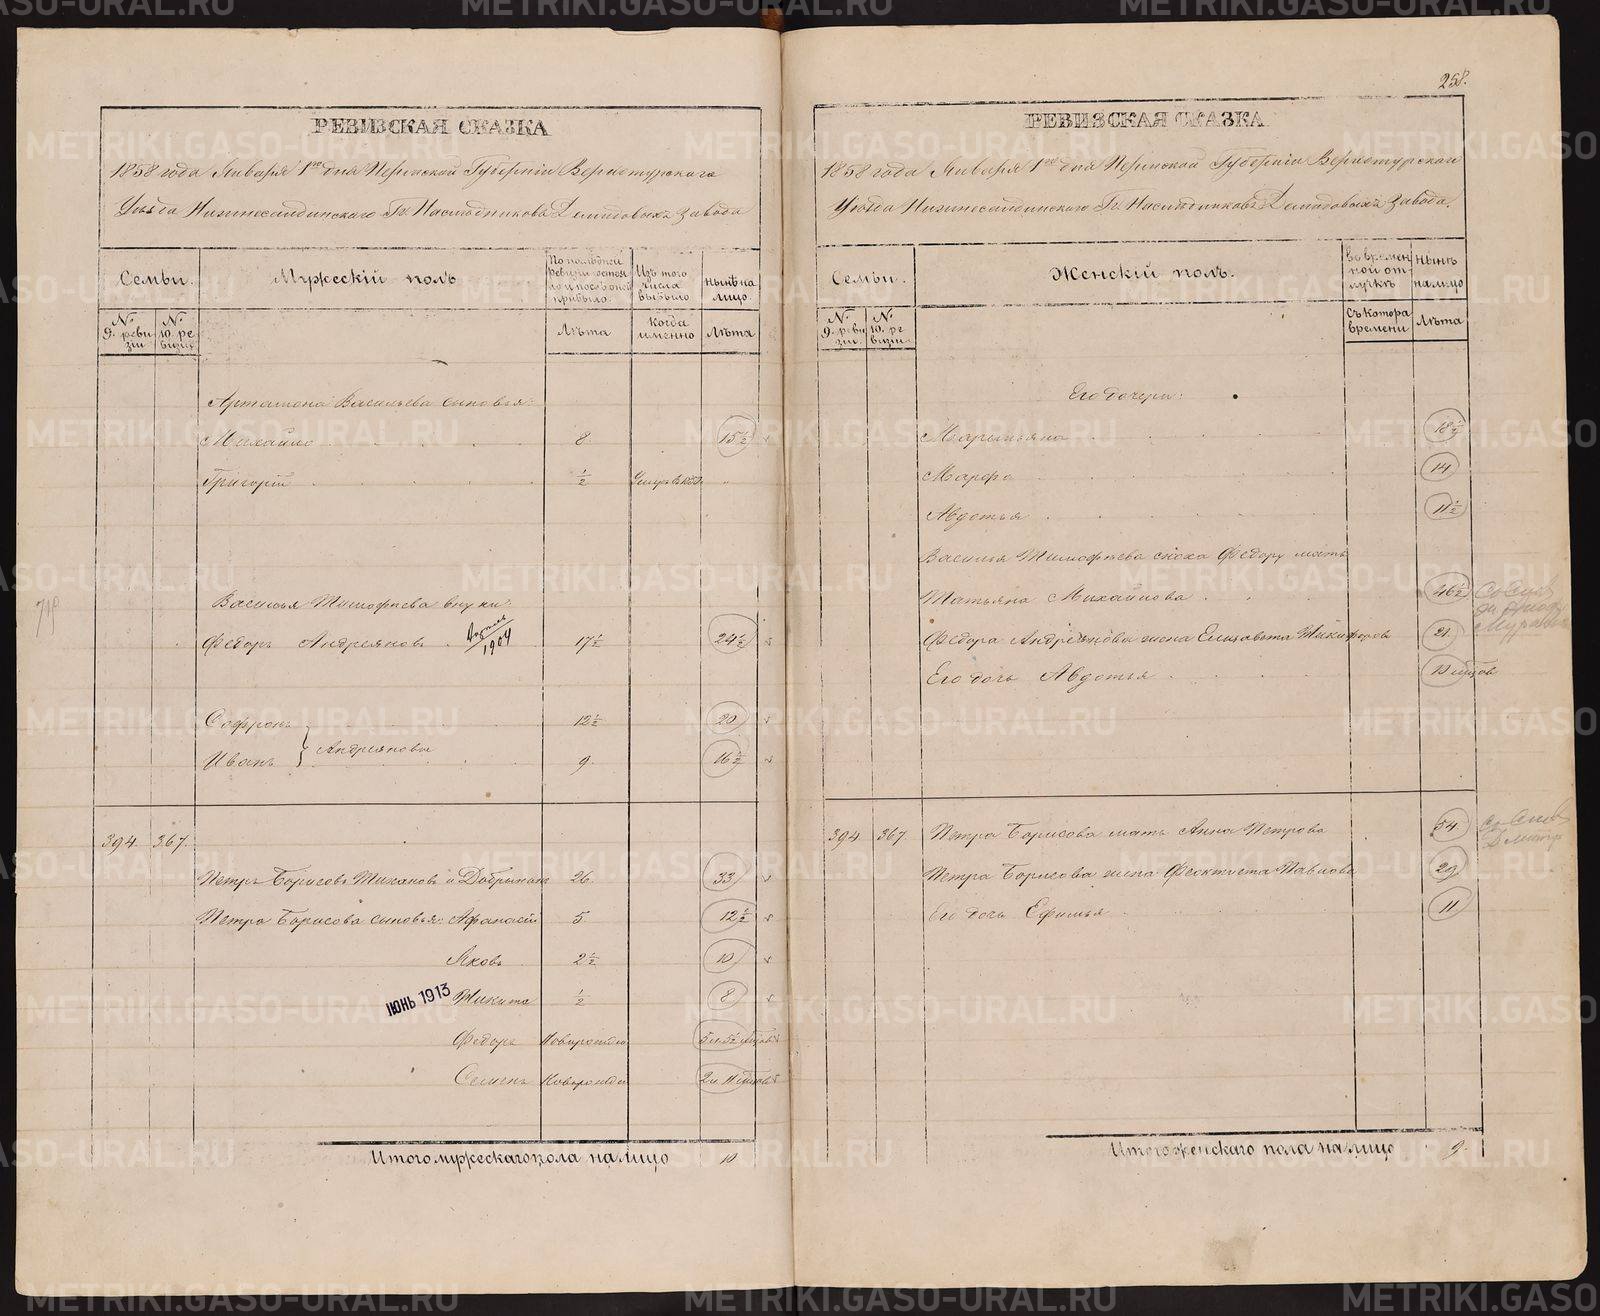 258.
РЕВИЗСКАЯ СКАЗКА
1858 года Января 1го дня Пермской Губерніи Верхотурскаго
Уѣзда Нижнесалдинскаго Гг. Наслѣдниковъ Демидовыхъ завода
Семьи.
Мужескій полъ
По послѣдней ревизіи состояло и послѣ оной прибыло.
Изъ того числа выбыло
Нынѣ на лицо.
№ 9. ревизіи
№ 10. ревизіи
Лѣта
Когда именно
Лѣта
Артамона Васильева сыновья:
Михайло 8. 15½
Григорій ½
Василья Тимофеева внуки:
Федоръ Андреяновъ 1904 17½ 24½
Софронъ 12½ 20
Иванъ Андреяновы 9. 16½
394. 367.
Петръ Борисовъ 26. 33
Петра Борисова сыновья: Афанасій 5. 12½
Яковъ 2½ 10
ІЮНЬ 1913 Никита ½ 8
Федоръ Новорожден
Семенъ Новорожден
Итого мужескаго пола на лицо 10
РЕВИЗСКАЯ СКАЗКА
1858 года Января 1го дня Пермской Губерніи Верхотурскаго
Уѣзда Нижнесалдинскаго Гг. Наслѣдниковъ Демидовыхъ завода.
Семьи.
Женскій полъ.
Во временной отлучкѣ
Нынѣ на лицо
№ 9. ревизіи
№ 10. ревизіи
Съ котора времени
Лѣта
Его дочери:
Маремьяна 18½
Марфа 14
Авдотья 11½
Василья Тимофеева сноха Федору мать
Татьяна Михайлова 46½
Федора Андреянова жена Елизавета Никифорова 21.
Его дочь Авдотья
394 367. Петра Борисова мать Анна Петрова 54.
Петра Борисова жена Феоктиста Павлова 29
Его дочь Ефимья 11
Итого женскаго пола на лицо 9.
METRIKI.GASO-URAL.RU